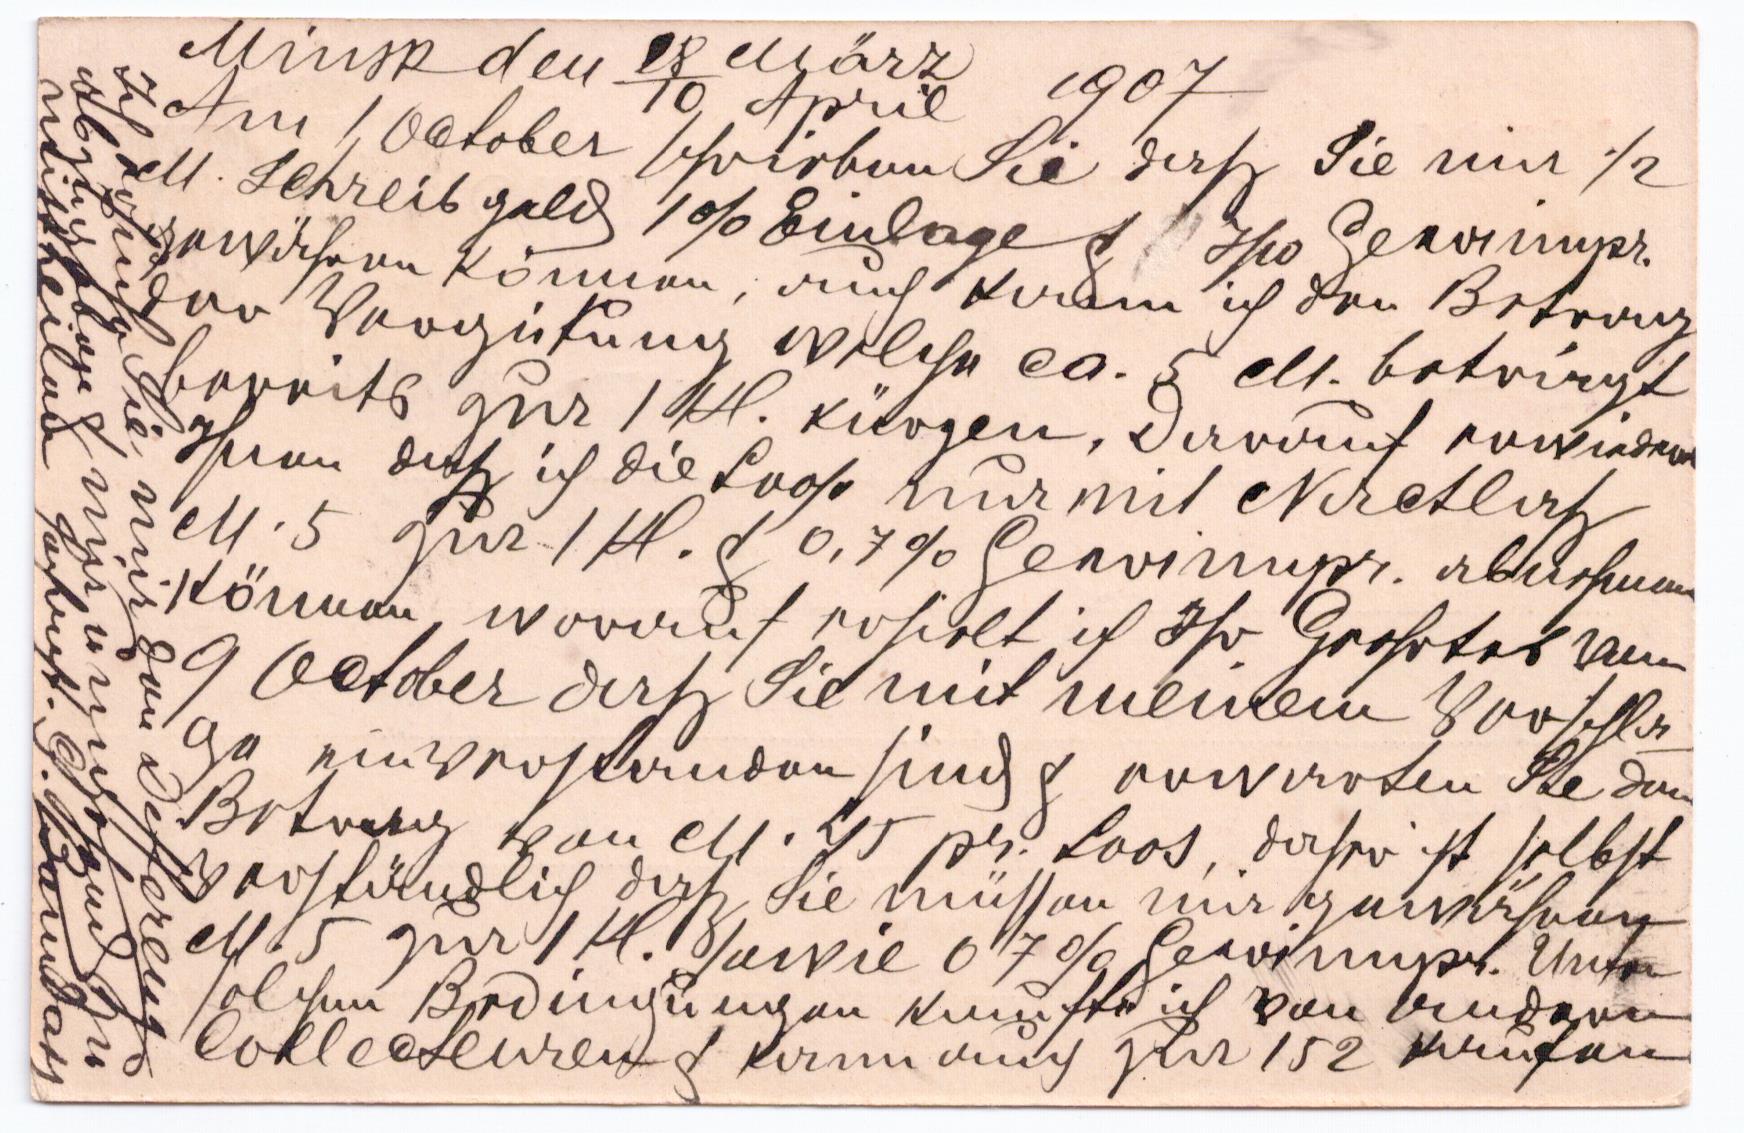 Minsk den 28 März
10 April 1907
Am 1 October schrieben Sie daß Sie mir 1/2
M. Schreibgeld 1% Einlage & Gewinnpr.
gewähren können, auch kann ich den Betrag
der Vergütung welche ca. 5 M. beträgt
bereits zur 1 Kl. kürzen. Darauf erwiedere
Ihnen daß ich die Loose nur mit Nachlaß
M. 5 zur 1 Kl. & 0,7% Gewinnpr. abnehmen
können, worauf erhielt ich Ihr Geehrtes vom
9 October daß Sie mit meinem Vorschla-
ge einverstanden sind & erwarten Sie den
Betrag von M. 45 pr. Loos, daher ist selbst
verständlich daß Sie müssen mir gewähren
M. 5 zur 1 Kl. sowie 0 7% Gewinnpr. Unter
solchen Bedingungen kaufte ich von andern
Collecteuren & kann auch zur 152 kaufen
Ich Sie mir den
abzug &
mittheilen